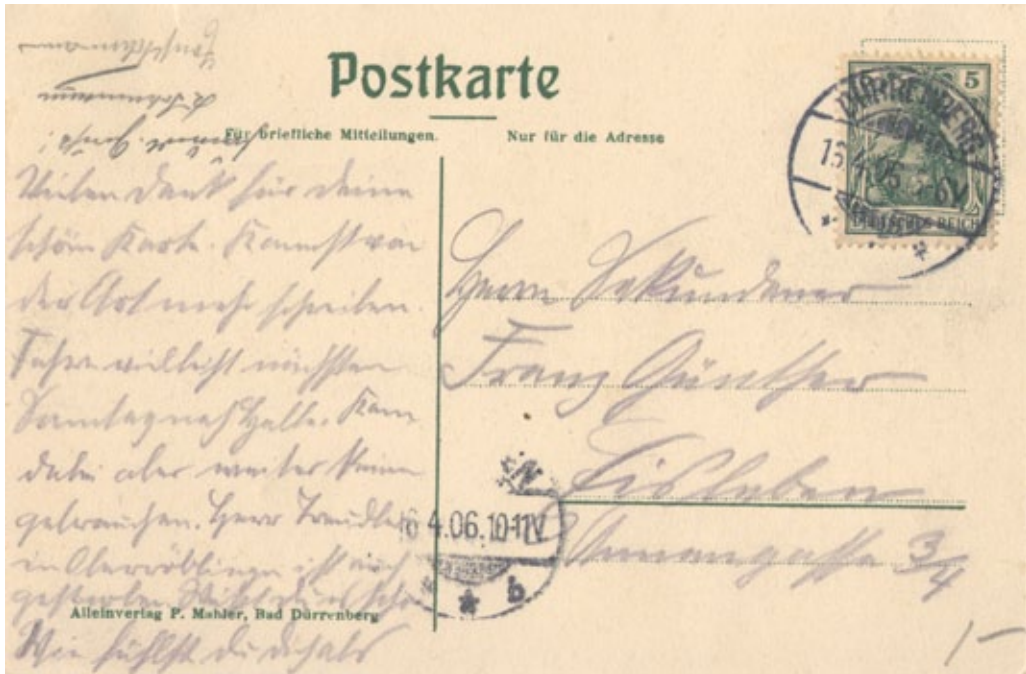 Postkarte
Für briefliche Mitteilungen.
Nur für die Adresse
Vielen Dank für deine
schöne Karte. Kannst von
der Art mehr schreiben.
Fahre vielleicht nächsten
Sonntag nach Halle. Kann
dabei aber weiter keinen
gebrauchen. Herr
in Oberröblingen ist auch
gestorben.
Wie fühlst du dich als
Alleinverlag P. Mahler, Bad Dürrenberg
5
DÜRRENBERG
DEUTSCHES REICH
Herrn Sekundaner
Franz Günther
Eisleben
Annengasse 3/4
4.06.10-11V
b